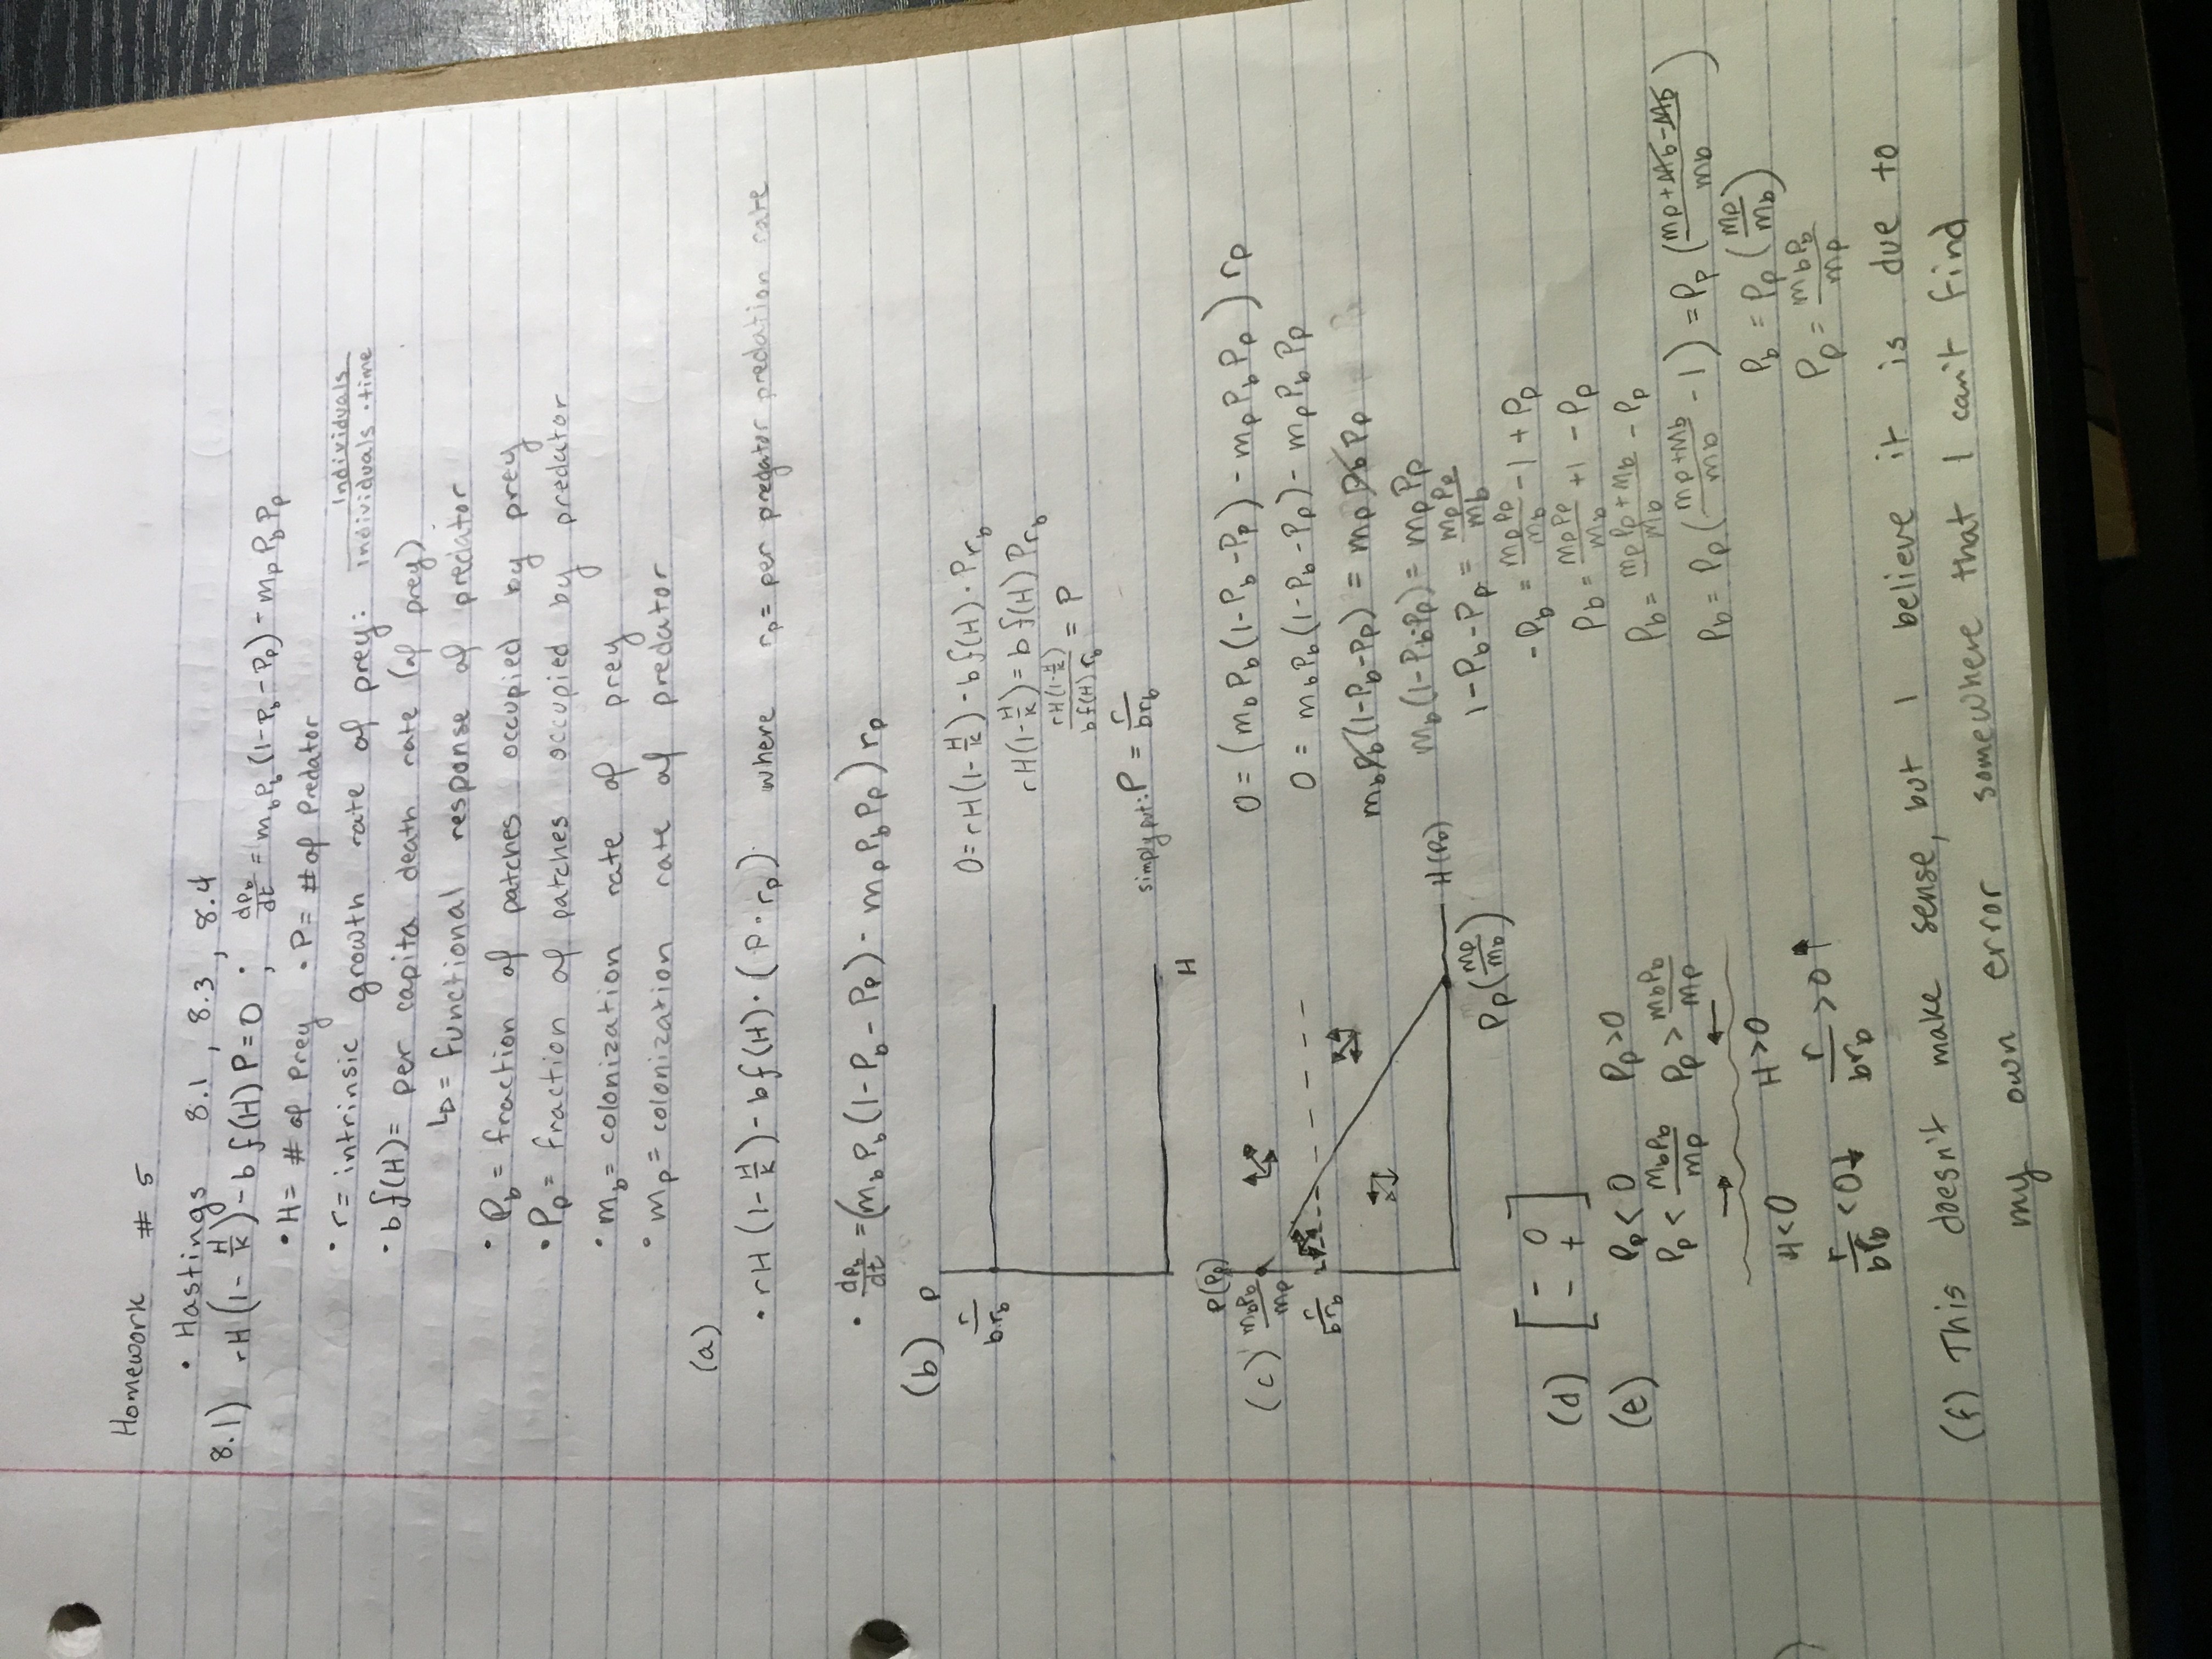 Homework # 5
• Hastings 8.1, 8.3, 8.4
8.1) rH(1- H/K) - b f(H) P = 0 ; dp_b/dt = m_b P_b (1-P_b-P_p) - m_p P_b P_p
• H = # of prey • P = # of Predator
• r = intrinsic growth rate of prey: Individuals / individuals · time
• b f(H) = per capita death rate (of prey)
↳ = functional response of predator
• P_b = fraction of patches occupied by prey
• P_p = fraction of patches occupied by predator
• m_b = colonization rate of prey
• m_p = colonization rate of predator
(a)
• rH (1- H/K) - b f(H) · (P · r_p) where r_p = per pregator predation rate
• dp_b/dt = (m_b P_b (1-P_b-P_p) - m_p P_b P_p) r_p
(b) P
r/b·r_b
H
0 = rH(1- H/K) - b f(H) · P r_b
rH(1- H/K) = b f(H) P r_b
rH(1- H/K) / b f(H) r_b = P
simply put: P = r/br_b
(c) P(P_p)
m_bP_b/m_p
r/br_b
H(P_b)
P_p(m_p/m_b)
0 = (m_b P_b (1-P_b-P_p) - m_p P_b P_p) r_p
0 = m_b P_b (1-P_b-P_p) - m_p P_b P_p
m_b P_b (1-P_b-P_p) = m_p P_b P_p
m_b (1-P_b-P_p) = m_p P_p
1-P_b-P_p = m_pP_p/m_b
-P_b = m_pP_p/m_b - 1 + P_p
P_b = m_pP_p/m_b + 1 - P_p
P_b = m_pP_p+m_b/m_b - P_p
P_b = P_p (m_p+m_b/m_b - 1) = P_p (m_p+m_b-m_b/m_b)
P_b = P_p (m_p/m_b)
P_p = m_bP_b/m_p
(d) [ - 0
- + ]
(e) P_p < 0 P_p > 0
P_p < m_bP_b/m_p P_p > m_bP_b/m_p
→ ←
H < 0 H > 0
r/br_b < 0 ↓ r/br_b > 0 ↑
(f) This doesn't make sense, but I believe it is due to
my own error somewhere that I can't find